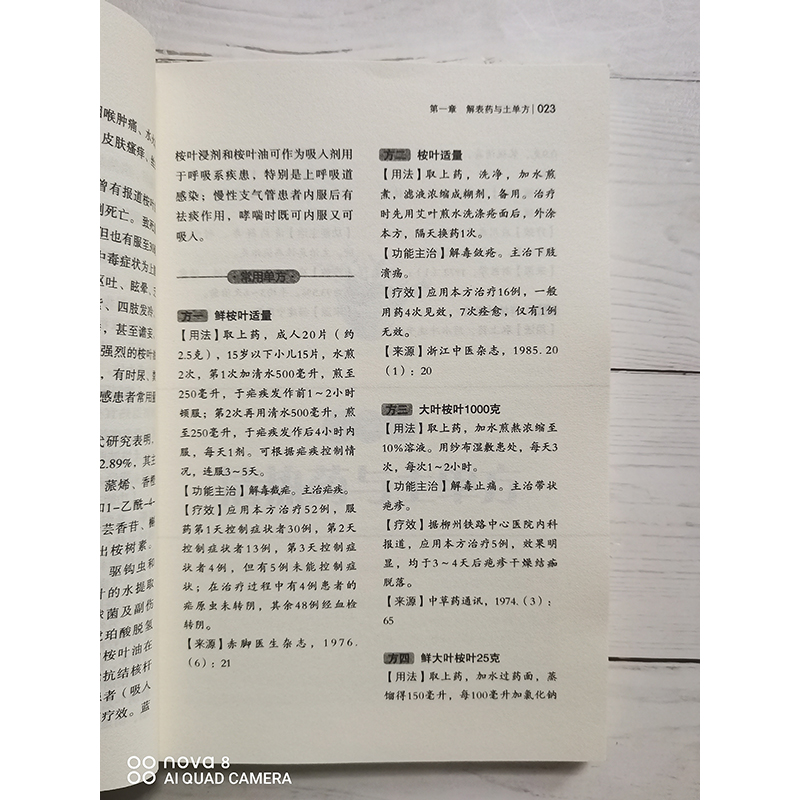 咽喉肿痛、水火
皮肤瘙痒、丝
曾有报道桉叶
死亡。
但也有服至30
中毒症状为上
呕吐、眩晕、
四肢发冷
甚至谵妄
强烈的桉叶
有时尿、粪
感患者常用
代研究表明，
2.89%，其主
蒎烯、香橙
1-乙酰-4-
芸香苷、槲
出桉树素。
驱钩虫和
叶的水提取
球菌及副伤
琥珀酸脱氢
桉叶油在
抗结核杆
患者（吸入
疗效。蓝
第一章 解表药与土单方 | 023
桉叶浸剂和桉叶油可作为吸入剂用
于呼吸系疾患，特别是上呼吸道
感染；慢性支气管患者内服后有
祛痰作用，哮喘时既可内服又可
吸入。
常用单方
方一 鲜桉叶适量
【用法】取上药，成人20片（约
2.5克），15岁以下小儿15片，水煎
2次，第1次加清水500毫升，煎至
250毫升，于疟疾发作前1~2小时
顿服；第2次再用清水500毫升，煎
至250毫升，于疟疾发作后4小时内
服，每天1剂。可根据疟疾控制情
况，连服3~5天。
【功能主治】解毒截疟。主治疟疾。
【疗效】应用本方治疗52例，服
药第1天控制症状者30例，第2天
控制症状者13例，第3天控制症
状者4例，但有5例未能控制症
状；在治疗过程中有4例患者的
疟原虫未转阴，其余48例经血检
转阴。
【来源】赤脚医生杂志，1976.
（6）：21
方二 桉叶适量
【用法】取上药，洗净，加水煎
煮，滤液浓缩成糊剂，备用。治疗
时先用艾叶煎水洗涤疮面后，外涂
本方，隔天换药1次。
【功能主治】解毒敛疮。主治下肢
溃疡。
【疗效】应用本方治疗16例，一般
用药4次见效，7次痊愈，仅有1例
无效。
【来源】浙江中医杂志，1985.20
（1）：20
方三 大叶桉叶1000克
【用法】取上药，加水煎熬浓缩至
10%溶液。用纱布湿敷患处，每天3
次，每次1~2小时。
【功能主治】解毒止痛。主治带状
疱疹。
【疗效】据柳州铁路中心医院内科
报道，应用本方治疗5例，效果明
显，均于3~4天后疱疹干燥结痂
脱落。
【来源】中草药通讯，1974.（3）：
65
方四 鲜大叶桉叶25克
【用法】取上药，加水过药面，蒸
馏得150毫升，每100毫升加氯化钠
nova 8
AI QUAD CAMERA